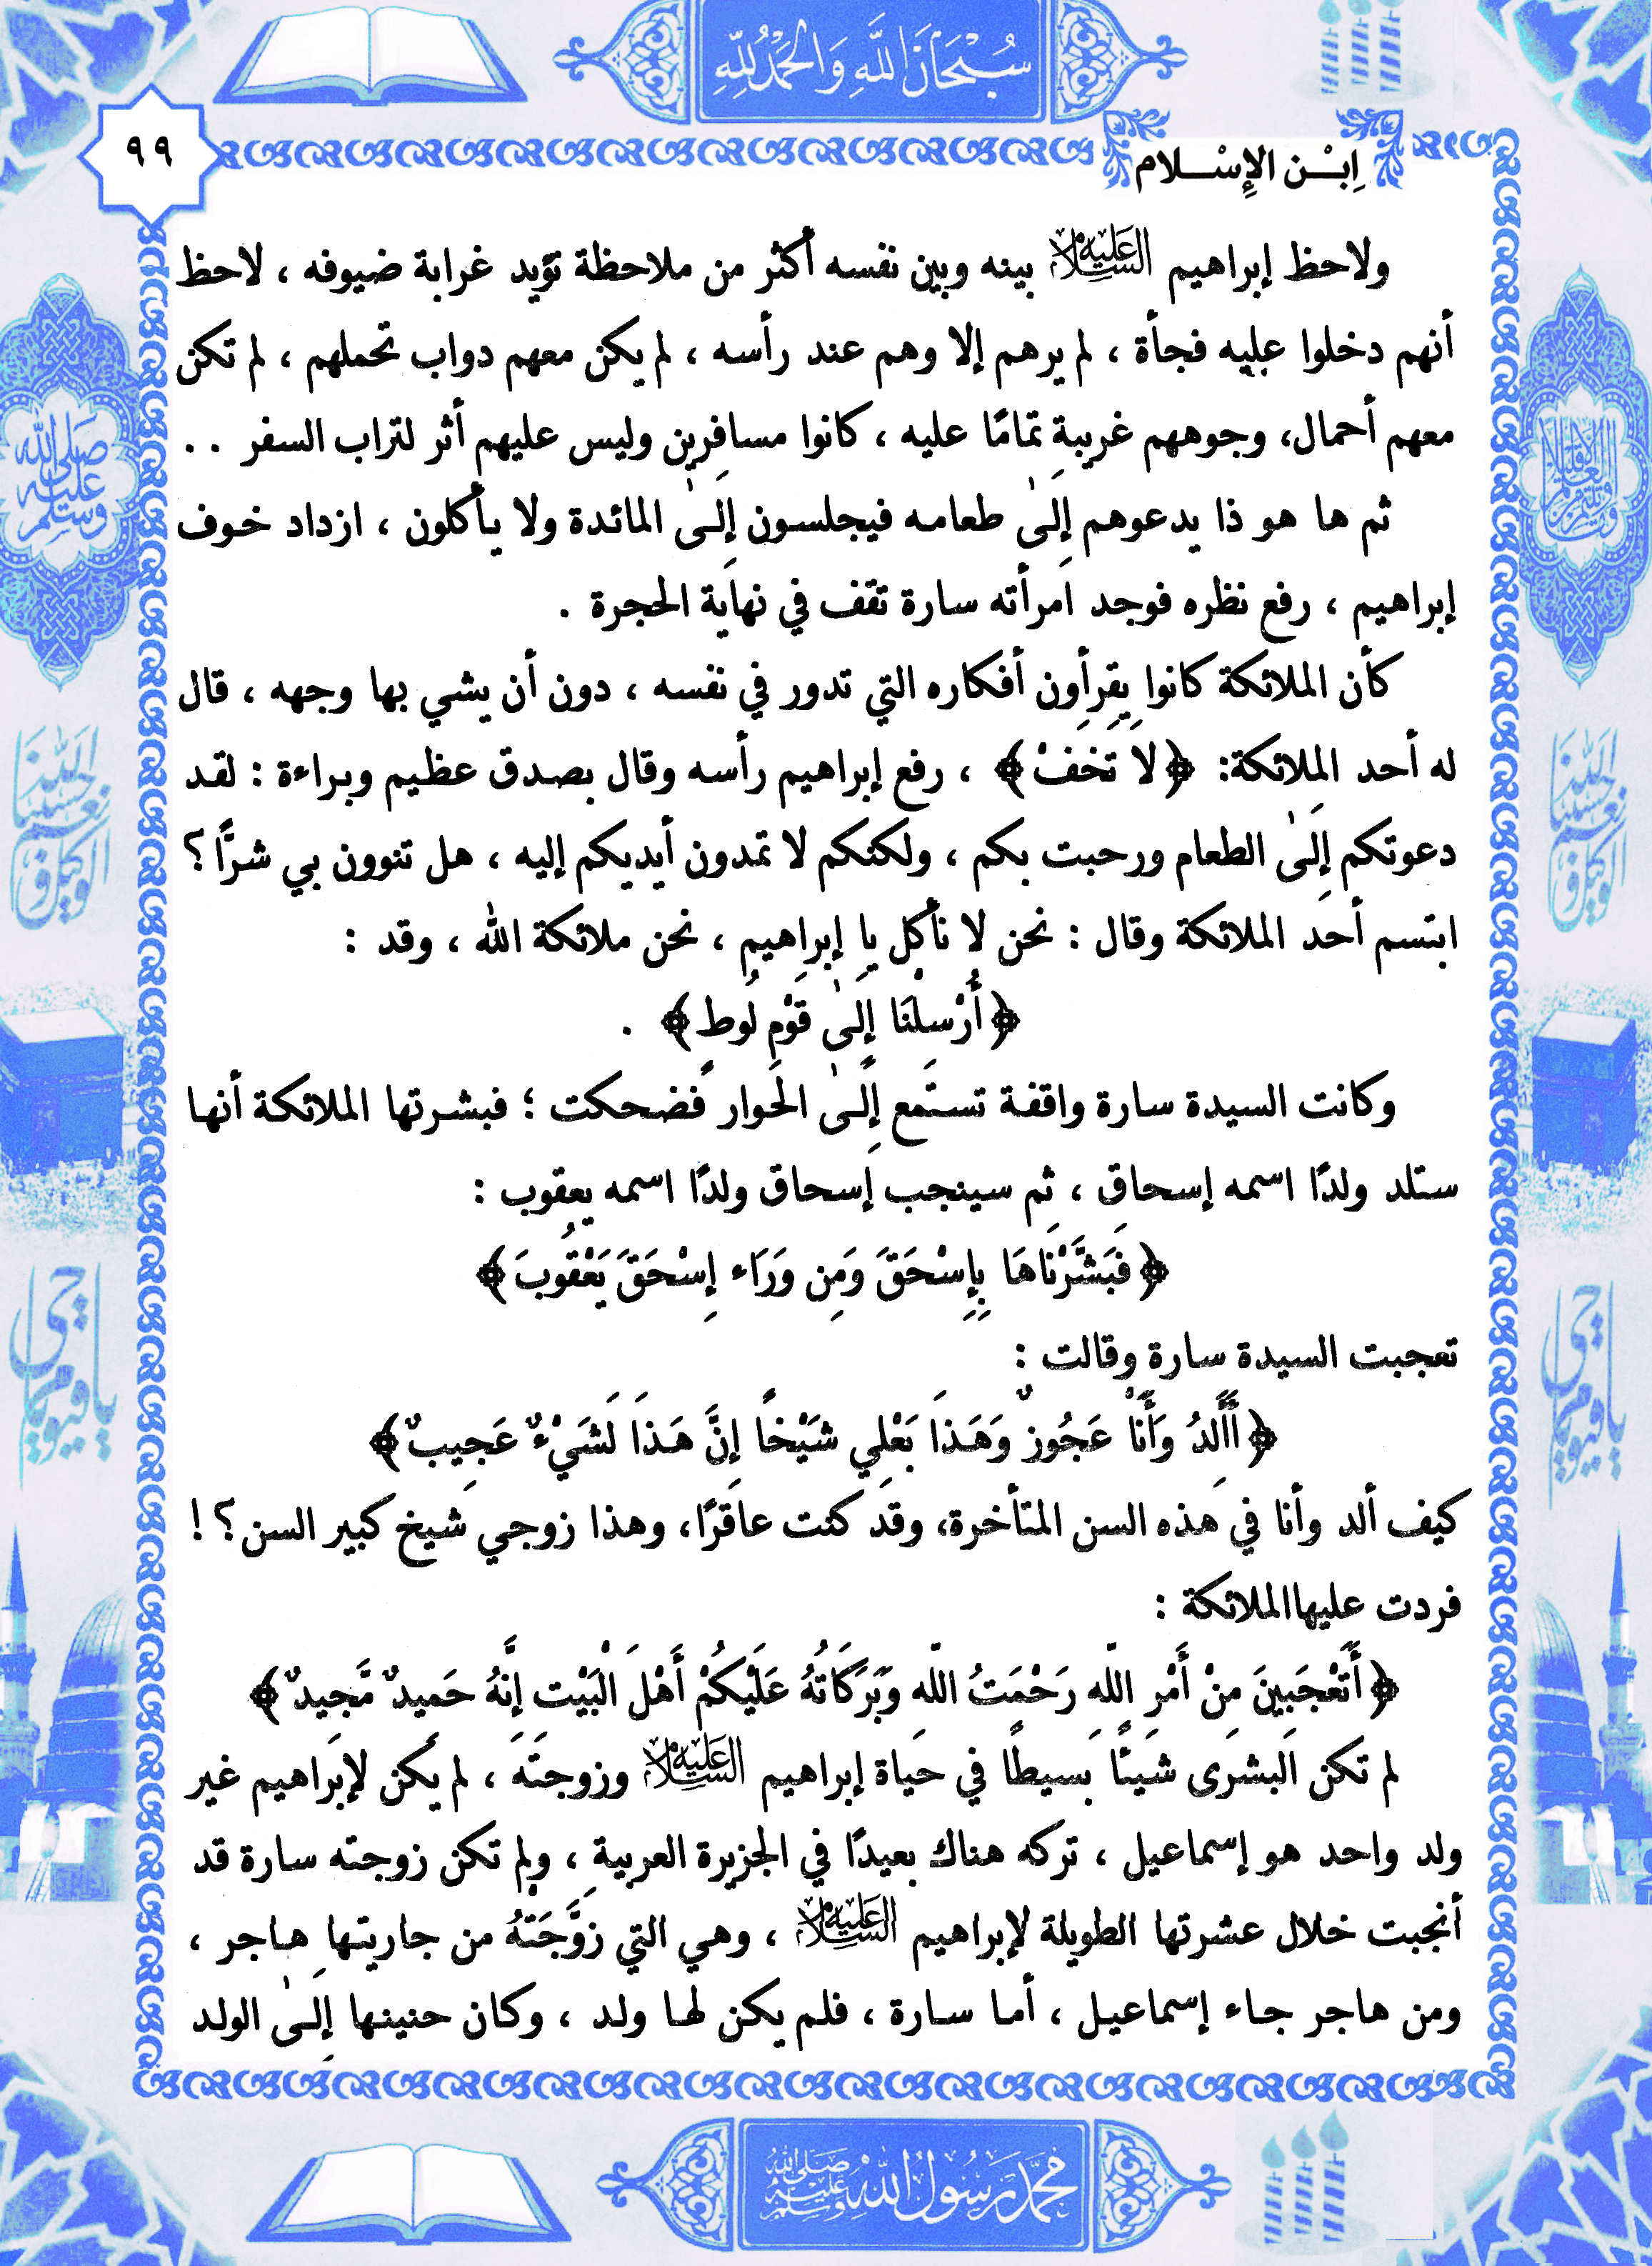 سُبْحَانَ اللَّهِ وَالحَمْدُ لِلَّهِ
٩٩
اِبْـــن الإِسْـــلام
ولاحظ إبراهيم عليه السلام بينه وبين نفسه أكثر من ملاحظة تؤيد غرابة ضيوفه ، لاحظ
أنهم دخلوا عليه فجأة ، لم يرهم إلا وهم عند رأسه ، لم يكن معهم دواب تحملهم ، لم تكن
معهم أحمال، وجوههم غريبة تمامًا عليه ، كانوا مسافرين وليس عليهم أثر لتراب السفر . .
ثم ها هو ذا يدعوهم إلىٰ طعامه فيجلسون إلىٰ المائدة ولا يأكلون ، ازداد خوف
إبراهيم ، رفع نظره فوجد امرأته سارة تقف في نهاية الحجرة .
كأن الملائكة كانوا يقرأون أفكاره التي تدور في نفسه ، دون أن يشي بها وجهه ، قال
له أحد الملائكة: ﴿لاَ تَخَفْ﴾ ، رفع إبراهيم رأسه وقال بصدق عظيم وبراءة : لقد
دعوتكم إلىٰ الطعام ورحبت بكم ، ولكنكم لا تمدون أيديكم إليه ، هل تنوون بي شرًّا ؟
ابتسم أحد الملائكة وقال : نحن لا نأكل يا إبراهيم ، نحن ملائكة الله ، وقد :
﴿أُرْسِلْنَا إِلَىٰ قَوْمِ لُوطٍ﴾ .
وكانت السيدة سارة واقفة تستمع إلىٰ الحوار فضحكت ؛ فبشرتها الملائكة أنها
ستلد ولدًا اسمه إسحاق ، ثم سينجب إسحاق ولدًا اسمه يعقوب :
﴿فَبَشَّرْنَاهَا بِإِسْحَقَ وَمِن وَرَاء إِسْحَقَ يَعْقُوبَ﴾
تعجبت السيدة سارة وقالت :
﴿أَأَلِدُ وَأَنَاْ عَجُوزٌ وَهَـذَا بَعْلِي شَيْخًا إِنَّ هَـذَا لَشَيْءٌ عَجِيبٌ﴾
كيف ألد وأنا في هذه السن المتأخرة، وقد كنت عاقرًا، وهذا زوجي شيخ كبير السن ؟ !
فردت عليهاالملائكة :
﴿أَتَعْجَبِينَ مِنْ أَمْرِ اللّهِ رَحْمَتُ اللّهِ وَبَرَكَاتُهُ عَلَيْكُمْ أَهْلَ الْبَيْتِ إِنَّهُ حَمِيدٌ مَّجِيدٌ﴾
لم تكن البشرى شيئًا بسيطًا في حياة إبراهيم عليه السلام وزوجته ، لم يكن لإبراهيم غير
ولد واحد هو إسماعيل ، تركه هناك بعيدًا في الجزيرة العربية ، ولم تكن زوجته سارة قد
أنجبت خلال عشرتها الطويلة لإبراهيم عليه السلام ، وهي التي زَوَّجَتْهُ من جاريتها هاجر ،
ومن هاجر جاء إسماعيل ، أما سارة ، فلم يكن لها ولد ، وكان حنينها إلىٰ الولد
صلى الله عليه وسلم
حسبنا الله ونعم الوكيل
يا حي يا قيوم
حسبنا الله ونعم الوكيل
يا حي يا قيوم
محمد رسول الله صلى الله عليه وسلم